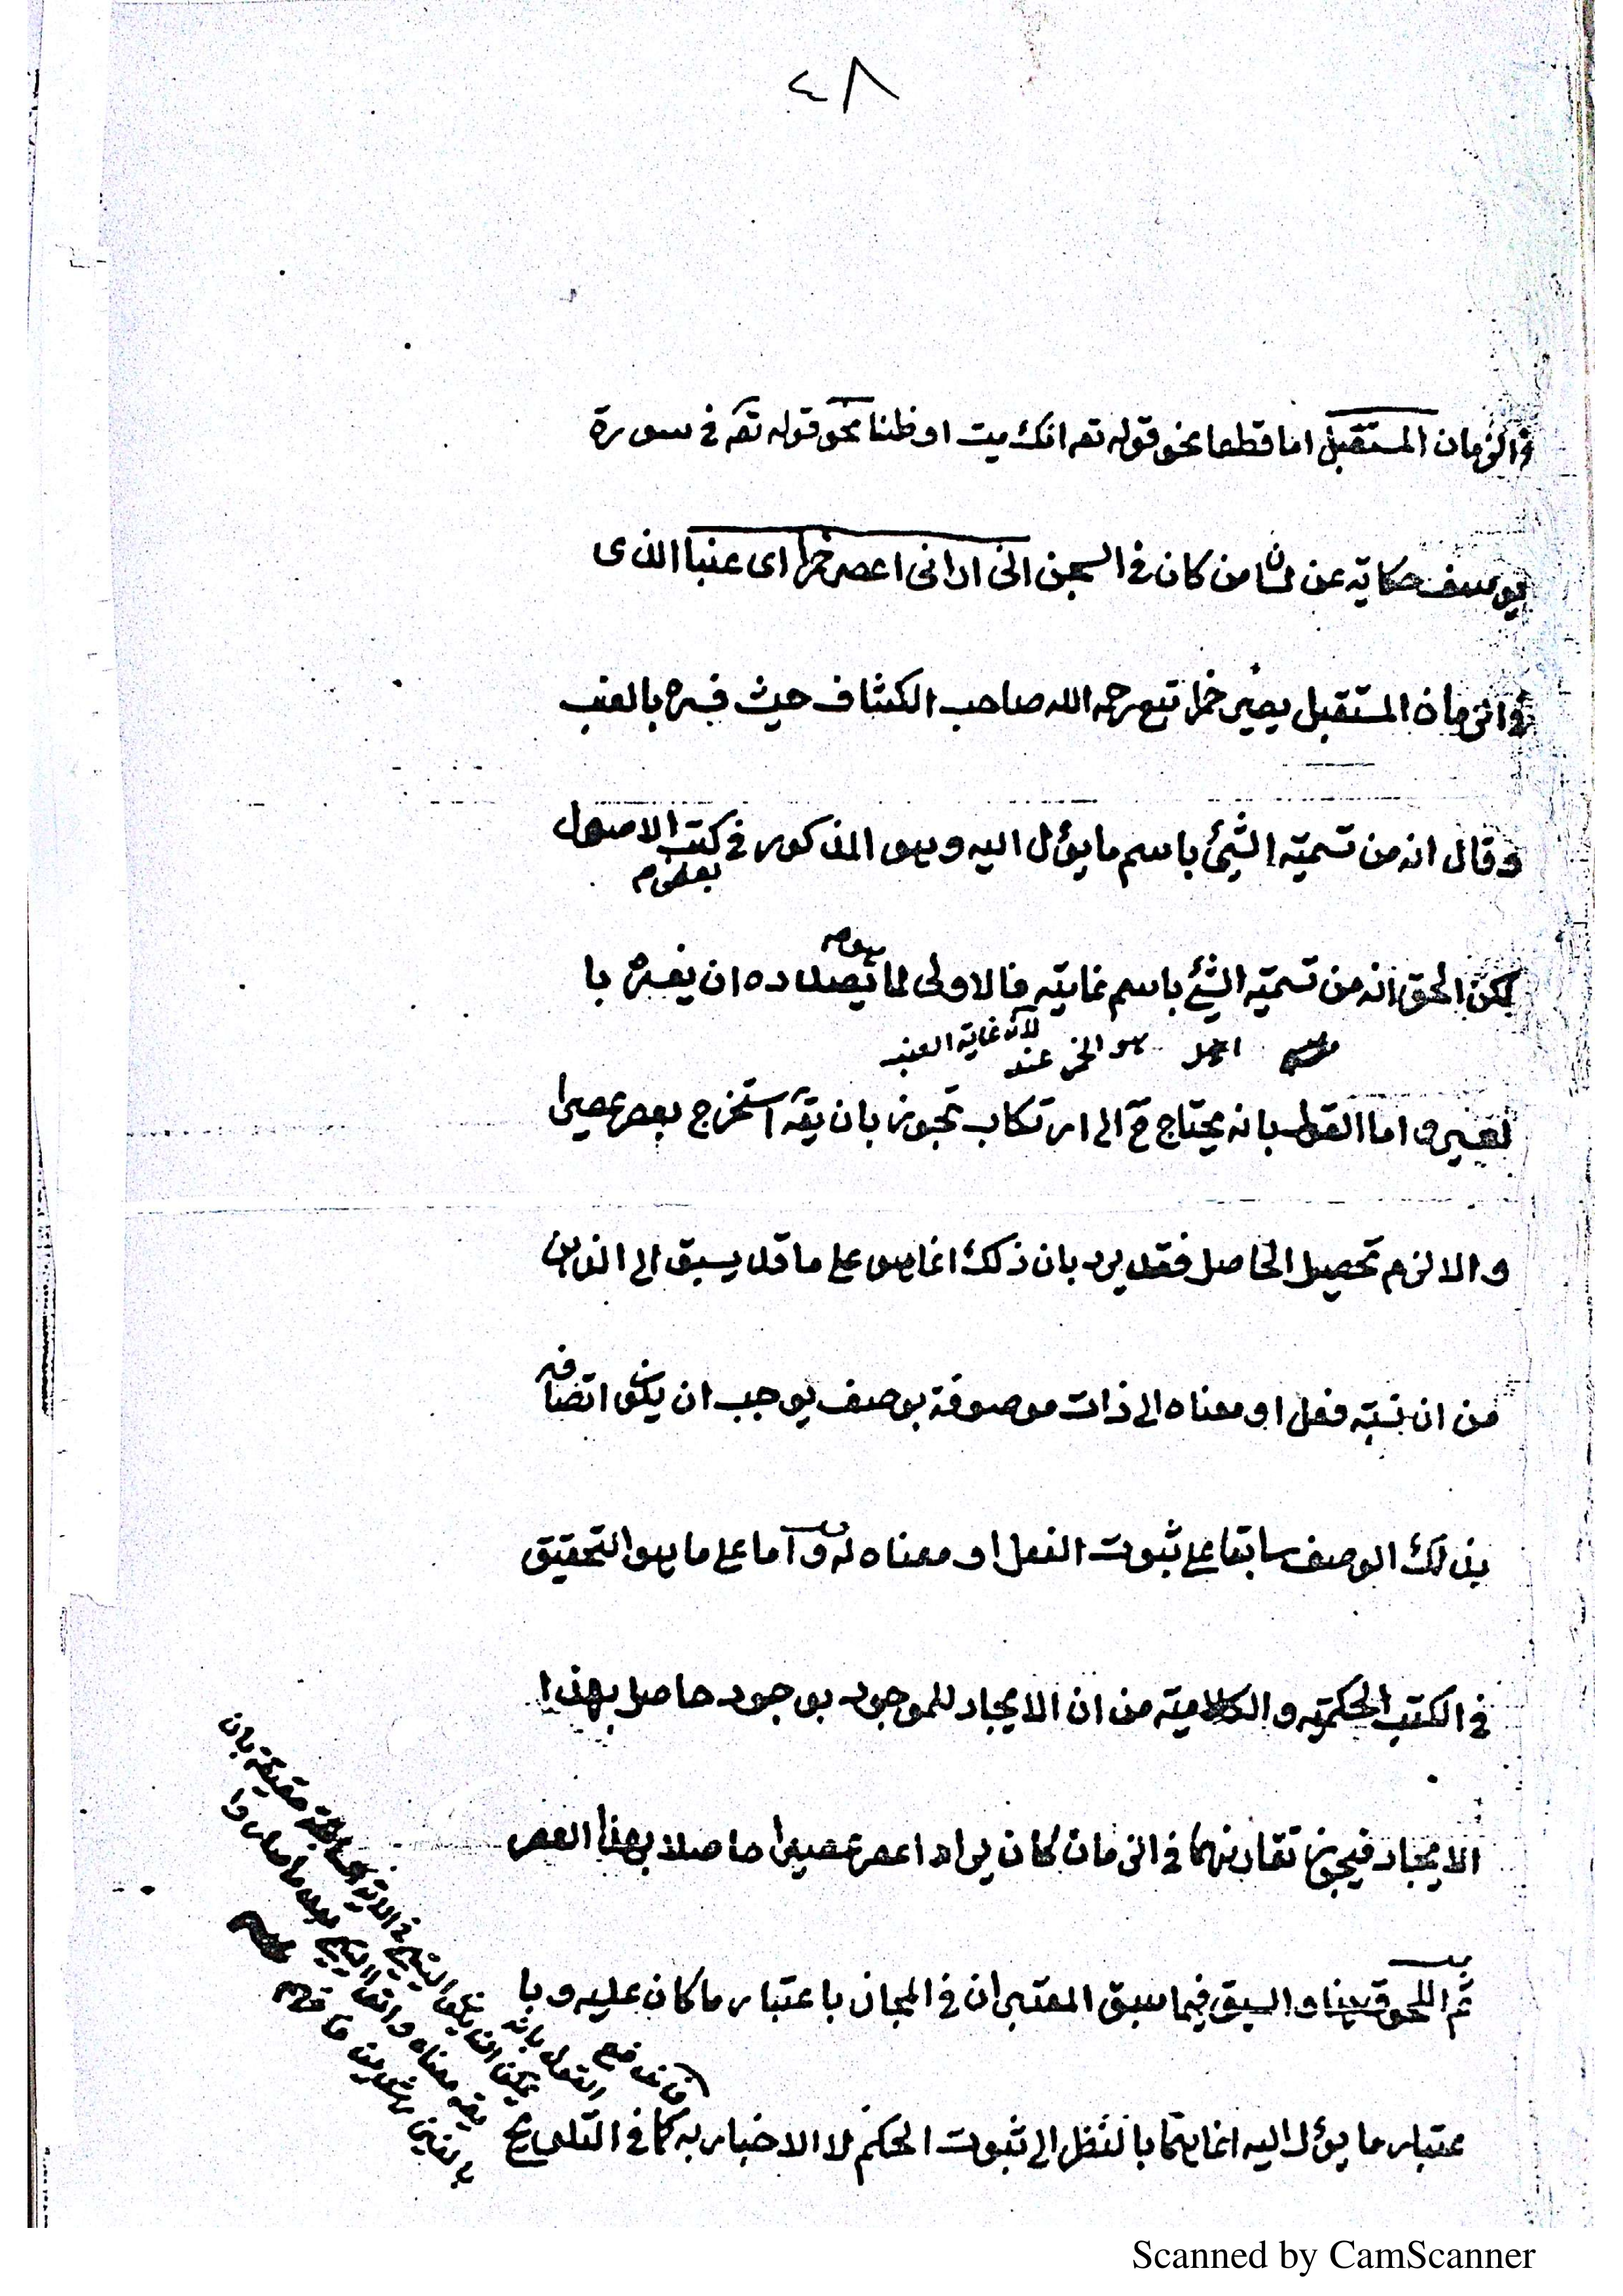 ٤٨
فى الزمان المستقبل اما قطعا نحو قوله تعه انك ميت او ظنا نحو قوله تعه فى سورة
يوسف حكاية عن من كان فى السجن انى ارانى اعصر خمرا اى عنبا الذى
فى الزمان المستقبل يصير خمرا تبع رحمه الله صاحب الكشاف حيث فسره بالعنب
وقال انه من تسمية الشئ باسم ما يؤل اليه وهو المذكور فى كتب الاصول
بعضهم
لكن الحق انه من تسمية الشئ باسم غايته فالاولى لما هو بصدده ان يفسره با
هو الخمر عند
لانه غاية العنب
لعصير واما القول بانه يحتاج ح الى ارتكاب تجوز بان يقه استخرج بعصر عصيرا
والا لزم تحصيل الحاصل فقد يرد بان ذلك انما هو على ما قد يسبق الى الذهن
من ان نسبة فعل او معناه الى ذات موصوفة بوصف يوجب ان يكون اتصافه
بذلك الوصف سابقا على ثبوت الفعل او معناه له واما على ما هو التحقيق
فى الكتب الحكمية والكلامية من ان الايجاد للموجود بوجود حاصل بهذا
الايجاد فيجوز تقارنهما فى الزمان كان يراد اعصر عصيرا حاصلا بهذا العصر
ثم اللحوق هنا والسبق فيما سبق المعتبران فى المجاز باعتبار ما كان عليه وبا
عتبار ما يؤل اليه انما هما بالنظر الى ثبوت الحكم لا الاخبار به كما فى التلويح
Scanned by CamScanner